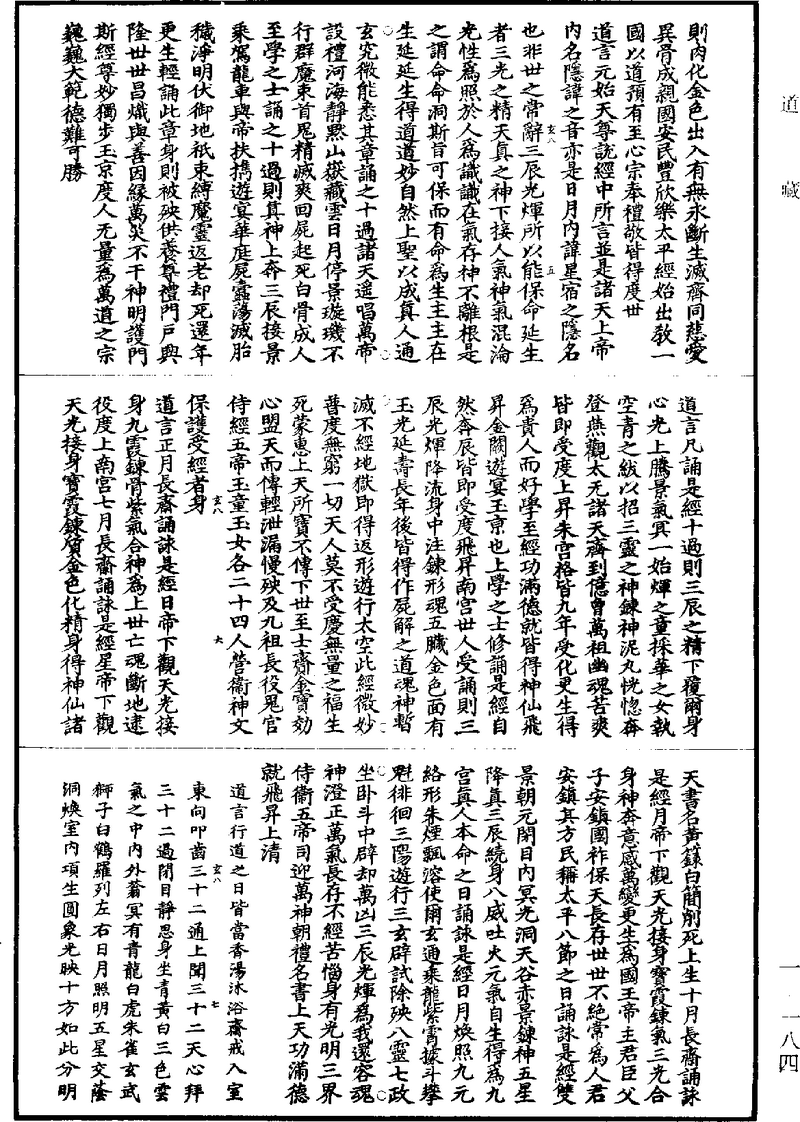 道藏
則內化金色出入有無永斷生滅齊同慈愛
異骨成親國安民豐欣樂太平經始出教一
國以道預有至心宗奉禮敬皆得度世
道言元始天尊說經中所言並是諸天上帝
內名隱諱之音亦是日月內諱星宿之隱名
也非世之常辭三辰光煇所以能保命延生
者三光之精天真之神下接人氣神氣混淪
光性爲照於人爲識識在氣存神不離根是
之謂命命洞斯旨可保而有命爲生主主在
生延延生得道道妙自然上聖以成真人通
玄究微能悉其章誦之十過諸天遥唱萬帝
設禮河海靜黙山嶽藏雲日月停景璇璣不
行群魔束首鬼精滅爽回屍起死白骨成人
至學之士誦之十過則其神上奔三辰接景
乘駕龍車與帝扶擕遊宴華庭屍蠹蕩滅胎
穢淨明伏御地祇束縛魔靈返老却死還年
更生輕誦此章身則被殃供養尊禮門戶興
隆世世昌熾與善因緣萬災不干神明護門
斯經尊妙獨步玉京度人无量爲萬道之宗
巍巍大範德難可勝
玄八
五
道言凡誦是經十過則三辰之精下覆爾身
心光上騰景氣冥一始煇之童採華之女執
空青之紱以招三靈之神鍊神泥丸恍惚奔
登燕觀太无諸天齊到億曾萬祖幽魂苦爽
皆即受度上昇朱宮格皆九年受化更生得
爲貴人而好學至經功滿德就皆得神仙飛
昇金闕遊宴玉京也上學之士修誦是經自
然奔辰皆即受度飛昇南宮世人受誦則三
辰光煇降流身中注鍊形魂五臟金色面有
玉光延壽長年後皆得作屍解之道魂神暫
滅不經地獄即得返形遊行太空此經微妙
普度無窮一切天人莫不受慶無量之福生
死蒙惠上天所寶不傳下世至士齎金寶効
心盟天而傳輕泄漏慢殃及九祖長役鬼官
侍經五帝玉童玉女各二十四人營衞神文
保護受經者身
玄八
六
道言正月長齋誦詠是經日帝下觀天光接
身九霞鍊骨紫氣合神爲上世亡魂斷地逮
役度上南宮七月長齋誦詠是經星帝下觀
天光接身寶霞鍊質金色化精身得神仙諸
天書名黃籙白簡削死上生十月長齋誦詠
是經月帝下觀天光接身寶霞鍊氣三光合
身神奔意感萬變更生爲國王帝主君臣父
子安鎮國祚保天長存世世不絕常爲人君
安鎮其方民稱太平八節之日誦詠是經雙
景朝元閉目內冥光洞天谷赤景鍊神五星
降真三辰繞身八威吐火元氣自生得爲九
宮真人本命之日誦詠是經日月煥照九元
絡形朱煙飄溶使爾玄通乘龍紫霄據斗攀
魁徘徊三陽遊行三玄辟試除殃八靈七政
坐卧斗中辟却萬凶三辰光煇爲我還容魂
神澄正萬氣長存不經苦惱身有光明三界
侍衞五帝司迎萬神朝禮名書上天功滿德
就飛昇上清
道言行道之日皆當香湯沐浴齋戒入室
東向叩齒三十二通上聞三十二天心拜
玄八
七
三十二過閉目靜思身坐青黃白三色雲
氣之中內外蓊冥有青龍白虎朱雀玄武
獅子白鶴羅列左右日月照明五星交蔭
洞煥室內項生圓象光映十方如此分明
一-一八四